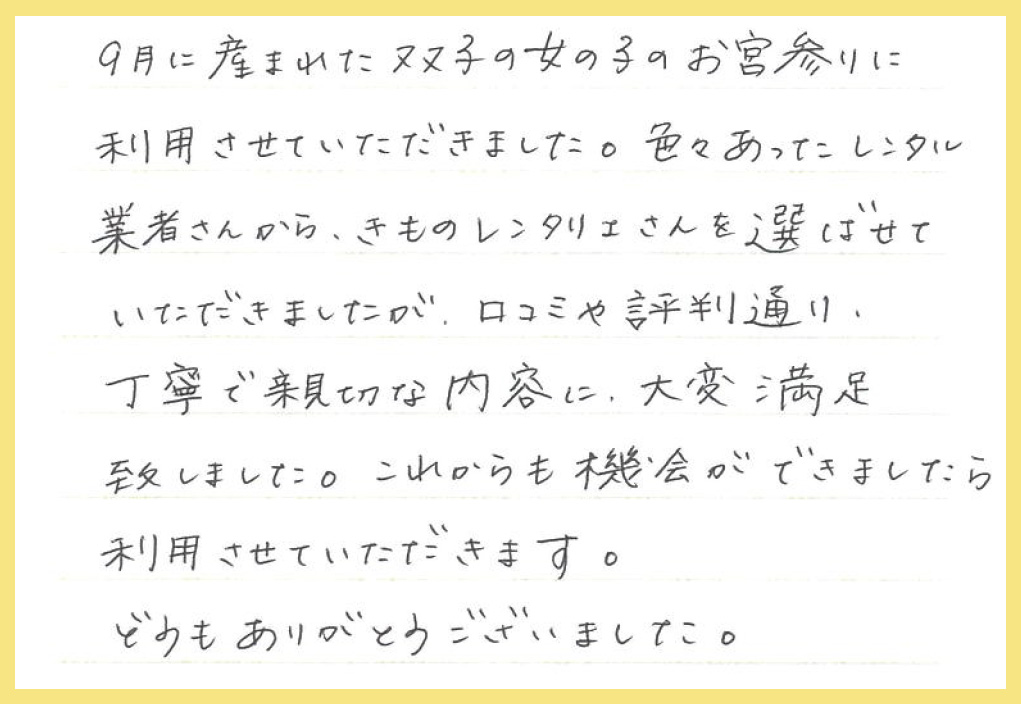 9月に産まれた双子の女の子のお宮参りに
利用させていただきました。色々あったレンタル
業者さんから、きものレンタリエさんを選ばせて
いただきましたが、口コミや評判通り、
丁寧で親切な内容に、大変満足
致しました。これからも機会ができましたら
利用させていただきます。
どうもありがとうございました。